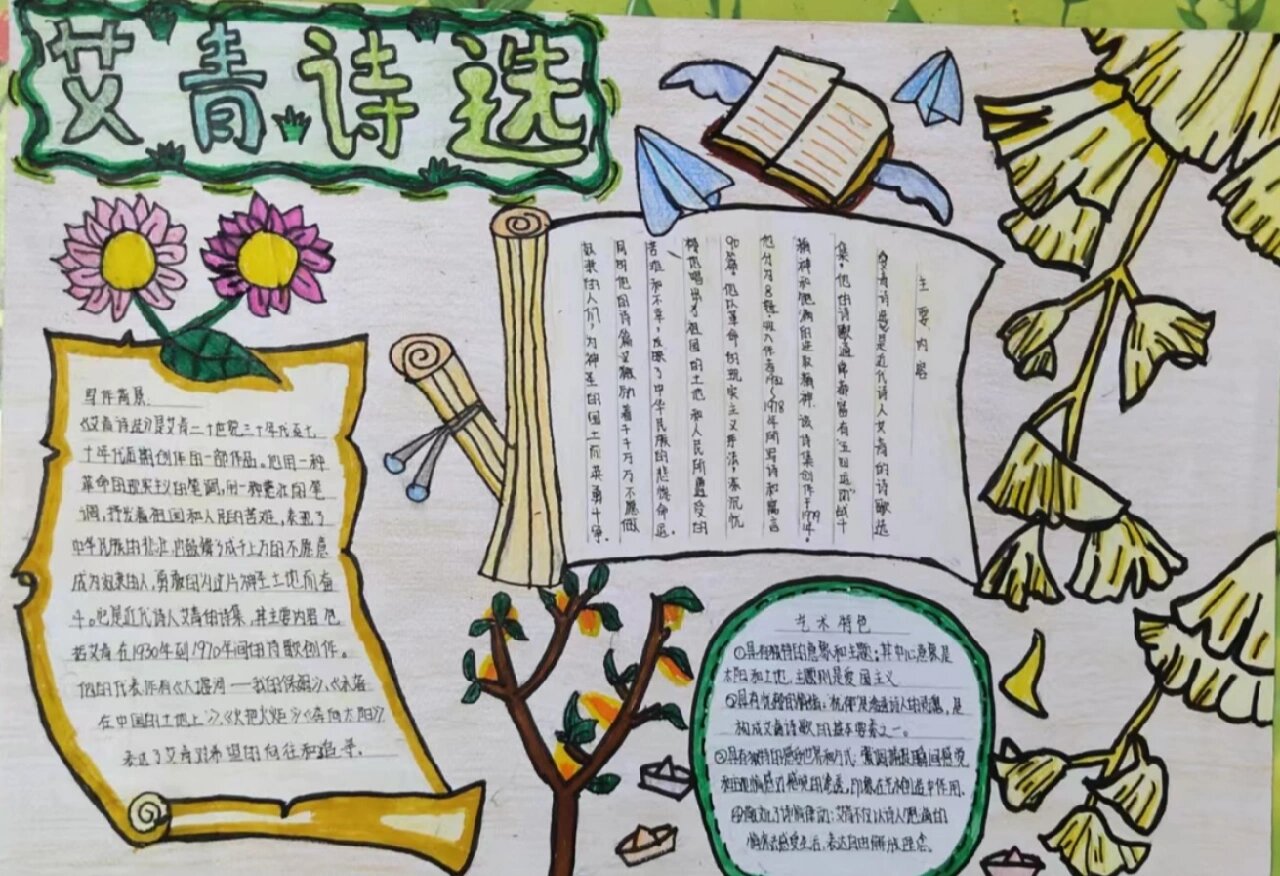 艾青诗选
写作背景
《艾青诗选》是艾青二十世纪三十年代至七
十年代后期创作的一部作品。他用一种
革命的现实主义的笔调,用一种悲壮的笔
调,抒发着祖国和人民的苦难,表现了
中华民族的悲壮,也鼓舞了成千上万的不愿意
成为奴隶的人,勇敢的为这片神圣土地而奋
斗。也是近代诗人艾青的诗集,其主要内容包
括艾青在1930年到1970年间的诗歌创作。
他的代表作有《大堰河——我的保姆》、《雪落
在中国的土地上》、《火把》《向太阳》
表达了艾青对希望的向往和追寻。
主要内容
艾青诗选是近代诗人艾青的诗歌选
集。他的诗歌通常富有
精神和饱满的进取精神。该诗集创作于1979年。
他分为8辑,收入作者1932~1978年间写诗和寓言
90篇。他以革命的现实主义手法,深沉忧
地唱出了祖国的土地和人民所遭受的
苦难和不幸,反映了中华民族的悲惨命运。
同时他的诗篇又激励着千千万万不愿做
奴隶的人们,为神圣的国土而英勇斗争。
艺术特色
①具有独特的意象和主题:其中心意象是
太阳和土地,主题则是爱国主义
②具有忧郁的情绪:忧郁是诗人的,是
构成艾青诗歌的基本要素之一。
③具有独特的感受世界和方式:瞬间感觉
和感觉的,印象在艺术创造中作用。
④诗